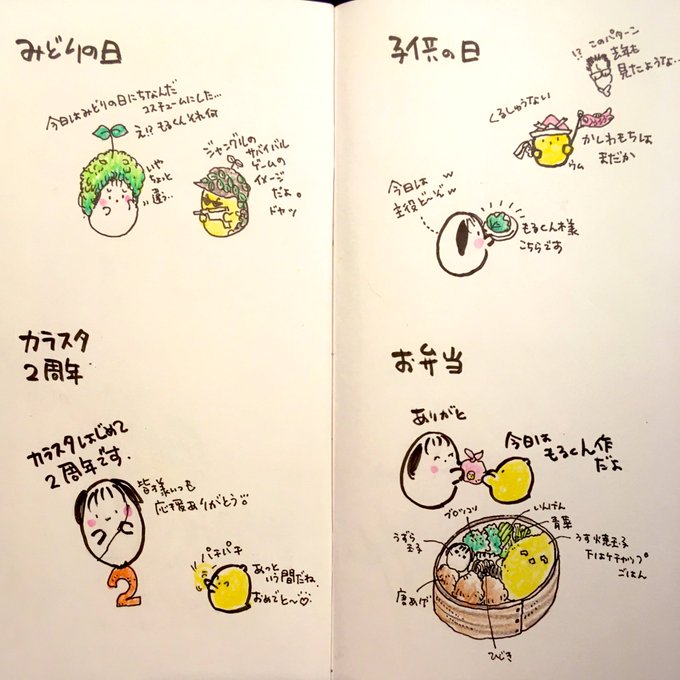 みどりの日
今日はみどりの日にちなんだ
コスチュームにした…
え!? もるくんそれ何
いや
ちょっと
違う…
ジャングルの
サバイバル
ゲームの
イメージ
だよ。
ドヤッ
カラスタ
2周年
カラスタはじめて
2周年です.
皆様いつも
応援ありがとう
2
パチパチ
あっと
いう間だね.
おめでと〜♡.
子供の日
!? このパターン
去年も
見たような…
くるしゅうない
かしわもちは
まだか
ウム
今日は
主役どーぞw
もるくん様
こちらです
お弁当
ありがと
今日は
もるくん作
だよ
ブロッコリ
いんげん
青菜
うずら
玉子
うす焼玉子
下はケチャップ
ごはん
唐あげ
ひじき